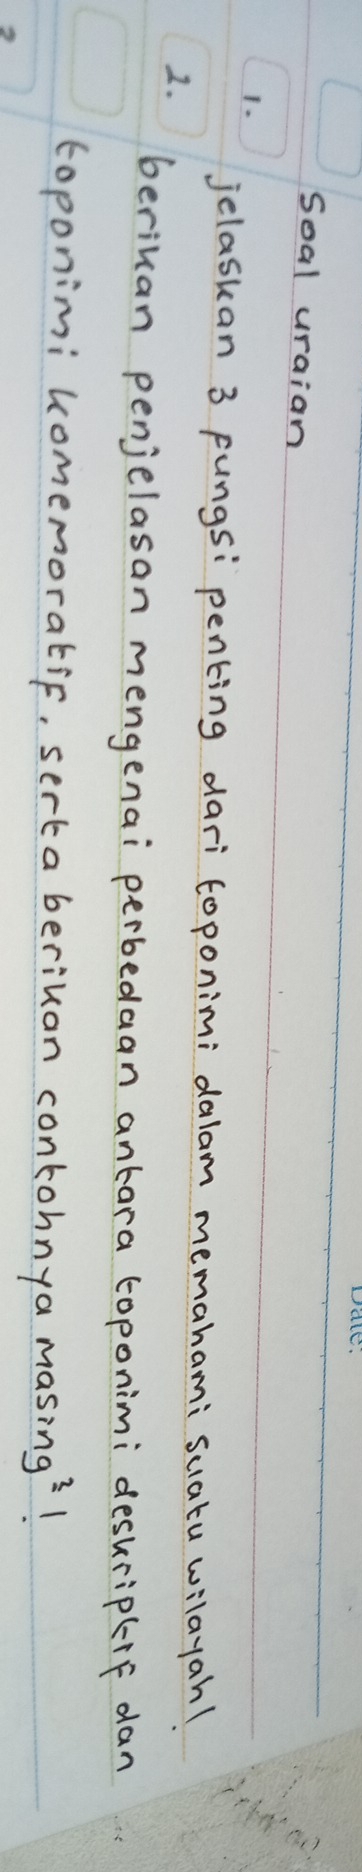 Date:
Soal uraian
1. jelaskan 3 fungsi penting dari toponimi dalam memahami suatu wilayah!
2. berikan penjelasan mengenai perbedaan antara toponimi deskriptif dan
toponimi komemoratif, serta berikan contohnya masing²!